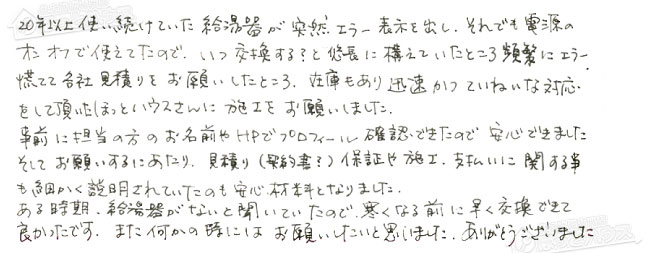 20年以上使い続けていた給湯器が突然エラー表示を出し、それでも電源の
オンオフで使えてたので、いつ交換する?と悠長に構えていたところ頻繁にエラー
慌てて各社見積りをお願いしたところ、在庫もあり迅速かつていねいな対応
をして頂いたほっとハウスさんに施工をお願いしました。
事前に担当の方のお名前やHPでプロフィール確認できたので安心できました
そしてお願いするにあたり、見積り(契約書?)保証や施工、支払いに関する事
も細かく説明されていたのも安心材料となりました。
ある時期、給湯器がないと聞いていたので、寒くなる前に早く交換できて
良かったです。また何かの時にはお願いしたいと思いました。ありがとうございました